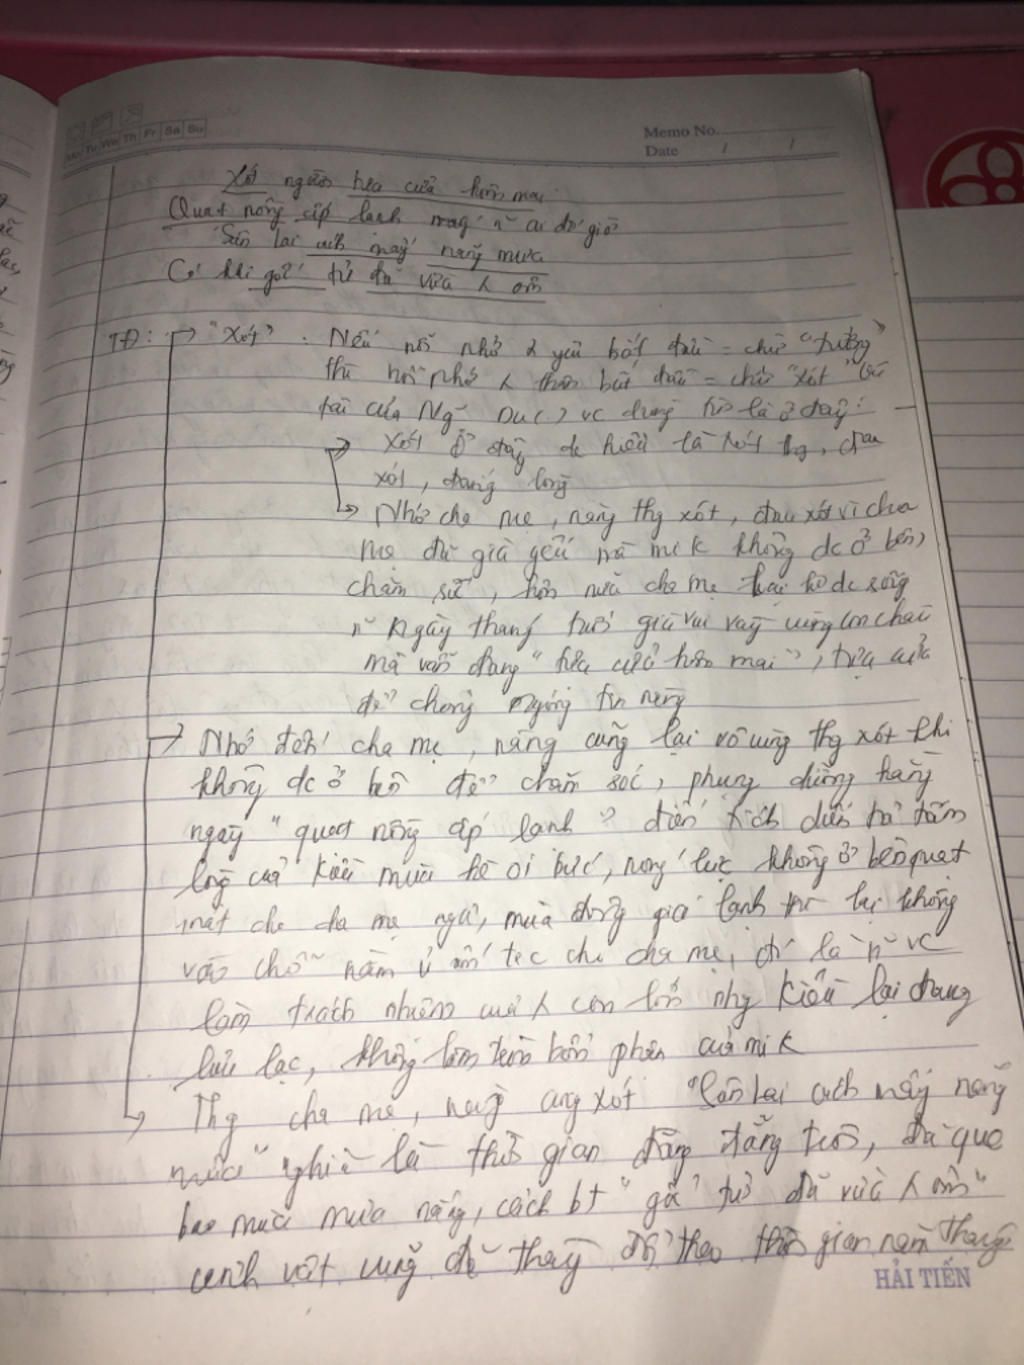 Mo Tu We Th Fr Sa Su
Memo No.
Date / /
Xót người tựa cửa hôm mai
Quạt nồng ấp lạnh n~ ai đó giờ
Sân lai cách mấy nắng mưa
Có khi gốc tử đã vừa ^ ôm
TĐ: → "Xót". Nếu nỗi nhớ yêu bắt đầu = chữ "tưởng"
thì nỗi nhớ thân bắt đầu = chữ "xót"
tài của Ng~ Du vc dùng từ là ở đây:
→ Xót ở đây dc hiểu là xót thg, đau
xót, đáng lòng
→ Nhớ cha mẹ, nàng thg xót, đau xót vì cha
mẹ đã già yếu mà mik không dc ở bên
chăm sữ, hơn nữa cha mẹ lại ko dc sống
n~ ngày tháng tuổi già vui vầy cùng con cháu
mà vẫn đang "tựa cửa hôm mai", tựa cửa
để ngóng tin nàng
→ Nhớ đến cha mẹ, nàng cũng lại vô cùng thg xót khi
không dc ở bên để chăm sóc, phụng dưỡng hàng
ngày "quạt nồng ấp lạnh" điển tích diễn tả tấm
lòng của Kiều mùa hè oi bức, nóng lực không ở bên quạt
mát cho cha mẹ ngủ, mùa đông giá lạnh thì lại không
vào chỗ nằm ủ ấm cho cha mẹ, đó là n~ vc
làm trách nhiệm của ^ con lớn nhg Kiều lại đang
lưu lạc, không làm tròn bổn phận của mik
→ Thg cha mẹ, nàng cũng xót "Sân Lai cách mấy nắng
mưa" nghĩa là thời gian đằng đẵng trôi, đã qua
bao mùa mưa nắng, cách bt "gốc tử đã vừa ^ ôm"
cảnh vật cũng đã thay đổi theo thời gian năm tháng
HẢI TIẾN